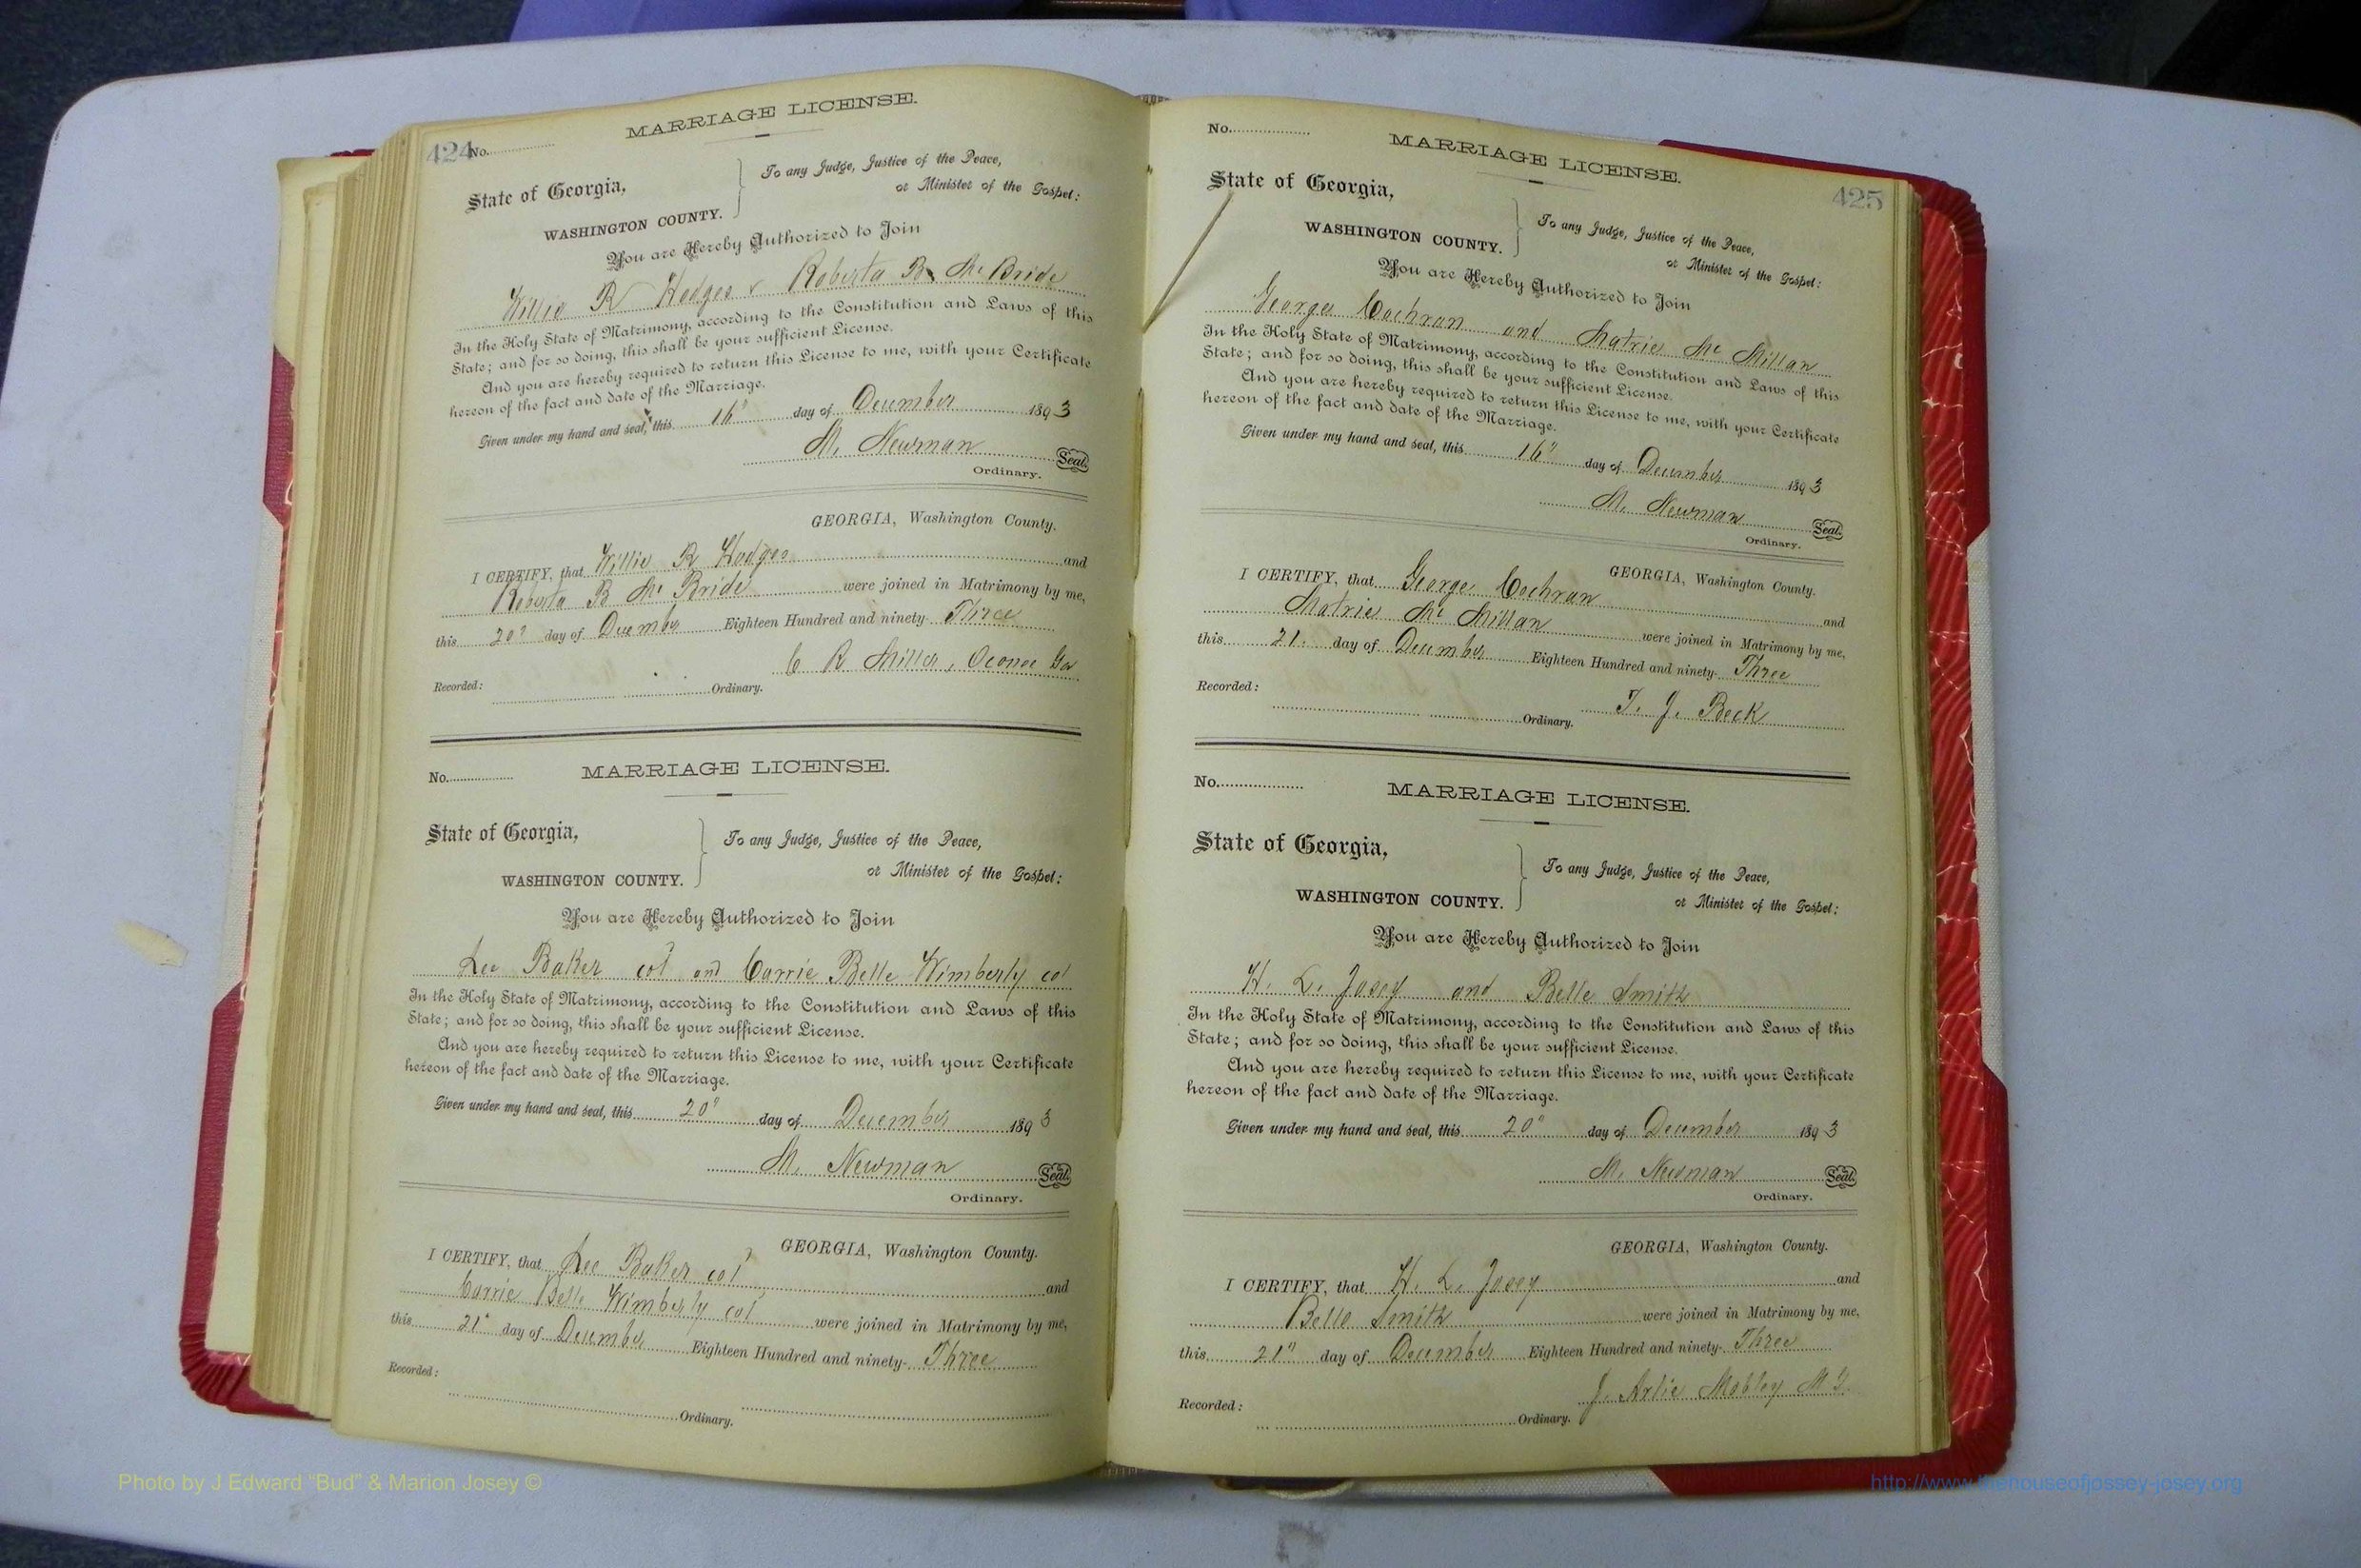 424
No.
MARRIAGE LICENSE.
State of Georgia,
WASHINGTON COUNTY.
To any Judge, Justice of the Peace,
or Minister of the Gospel:
You are Hereby Authorized to Join
Willie R Hodges & Roberta B Mc Bride
In the Holy State of Matrimony, according to the Constitution and Laws of this
State; and for so doing, this shall be your sufficient License.
And you are hereby required to return this License to me, with your Certificate
hereon of the fact and date of the Marriage.
Given under my hand and seal, this 16" day of December 1893
M. Newman Seal.
Ordinary.
GEORGIA, Washington County.
I CERTIFY, that Willie R Hodges and
Roberta B Mc Bride were joined in Matrimony by me,
this 20" day of December Eighteen Hundred and ninety- Three
C R Miller, Oconee Ga
Recorded: Ordinary.
No.
MARRIAGE LICENSE.
State of Georgia,
WASHINGTON COUNTY.
To any Judge, Justice of the Peace,
or Minister of the Gospel:
You are Hereby Authorized to Join
Lee Baker col and Carrie Belle Wimberly col
In the Holy State of Matrimony, according to the Constitution and Laws of this
State; and for so doing, this shall be your sufficient License.
And you are hereby required to return this License to me, with your Certificate
hereon of the fact and date of the Marriage.
Given under my hand and seal, this 20" day of December 1893
M. Newman Seal.
Ordinary.
GEORGIA, Washington County.
I CERTIFY, that Lee Baker col and
Carrie Belle Wimberly col were joined in Matrimony by me,
this 21" day of December Eighteen Hundred and ninety- Three
Recorded:
Ordinary.
No.
MARRIAGE LICENSE.
425
State of Georgia,
WASHINGTON COUNTY.
To any Judge, Justice of the Peace,
or Minister of the Gospel:
You are Hereby Authorized to Join
George Cochran and Matrie Mc Millan
In the Holy State of Matrimony, according to the Constitution and Laws of this
State; and for so doing, this shall be your sufficient License.
And you are hereby required to return this License to me, with your Certificate
hereon of the fact and date of the Marriage.
Given under my hand and seal, this 16" day of December 1893
M. Newman Seal.
Ordinary.
GEORGIA, Washington County.
I CERTIFY, that George Cochran and
Matrie Mc Millan were joined in Matrimony by me,
this 21. day of December Eighteen Hundred and ninety- Three
T. J. Beck
Recorded: Ordinary.
No.
MARRIAGE LICENSE.
State of Georgia,
WASHINGTON COUNTY.
To any Judge, Justice of the Peace,
or Minister of the Gospel:
You are Hereby Authorized to Join
H. L. Josey and Belle Smith
In the Holy State of Matrimony, according to the Constitution and Laws of this
State; and for so doing, this shall be your sufficient License.
And you are hereby required to return this License to me, with your Certificate
hereon of the fact and date of the Marriage.
Given under my hand and seal, this 20" day of December 1893
M. Newman Seal.
Ordinary.
GEORGIA, Washington County.
I CERTIFY, that H. L. Josey and
Belle Smith were joined in Matrimony by me,
this 21" day of December Eighteen Hundred and ninety- Three
J. Arlie Mobley M G.
Recorded: Ordinary.
Photo by J Edward "Bud" & Marion Josey ©
http://www.thehouseofjossey-josey.org